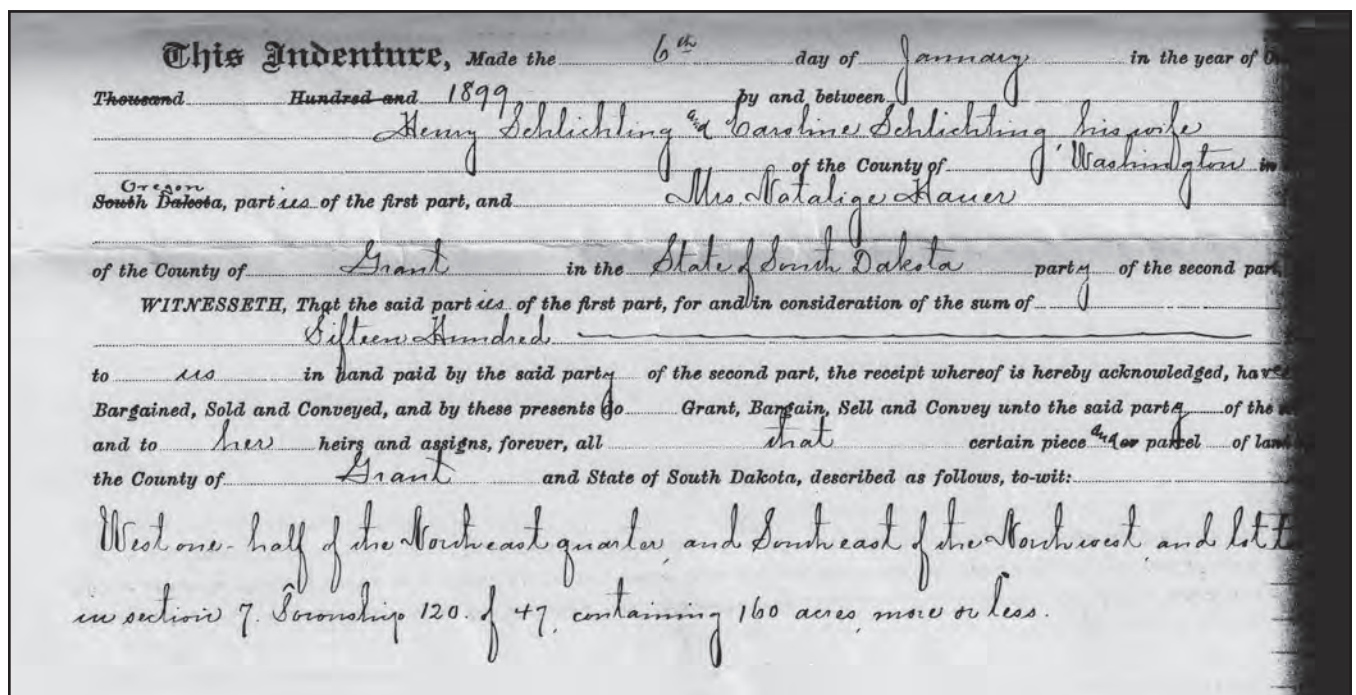 This Indenture, Made the 6th day of January in the year of
Thousand Hundred and 1899 by and between
Henry Schlichting and Caroline Schlichting his wife
of the County of Washington in
Oregon
South Dakota, parties of the first part, and Mrs. Natalige Hauer
of the County of Grant in the State of South Dakota party of the second part,
WITNESSETH, That the said parties of the first part, for and in consideration of the sum of
Fifteen Hundred
to us in hand paid by the said party of the second part, the receipt whereof is hereby acknowledged, have
Bargained, Sold and Conveyed, and by these presents do Grant, Bargain, Sell and Convey unto the said party of the
and to her heirs and assigns, forever, all that certain piece and or parcel of land
the County of Grant and State of South Dakota, described as follows, to-wit:
West one-half of the Northeast quarter, and Southeast of the Northwest, and lot
in section 7. Township 120. of 47, containing 160 acres, more or less.